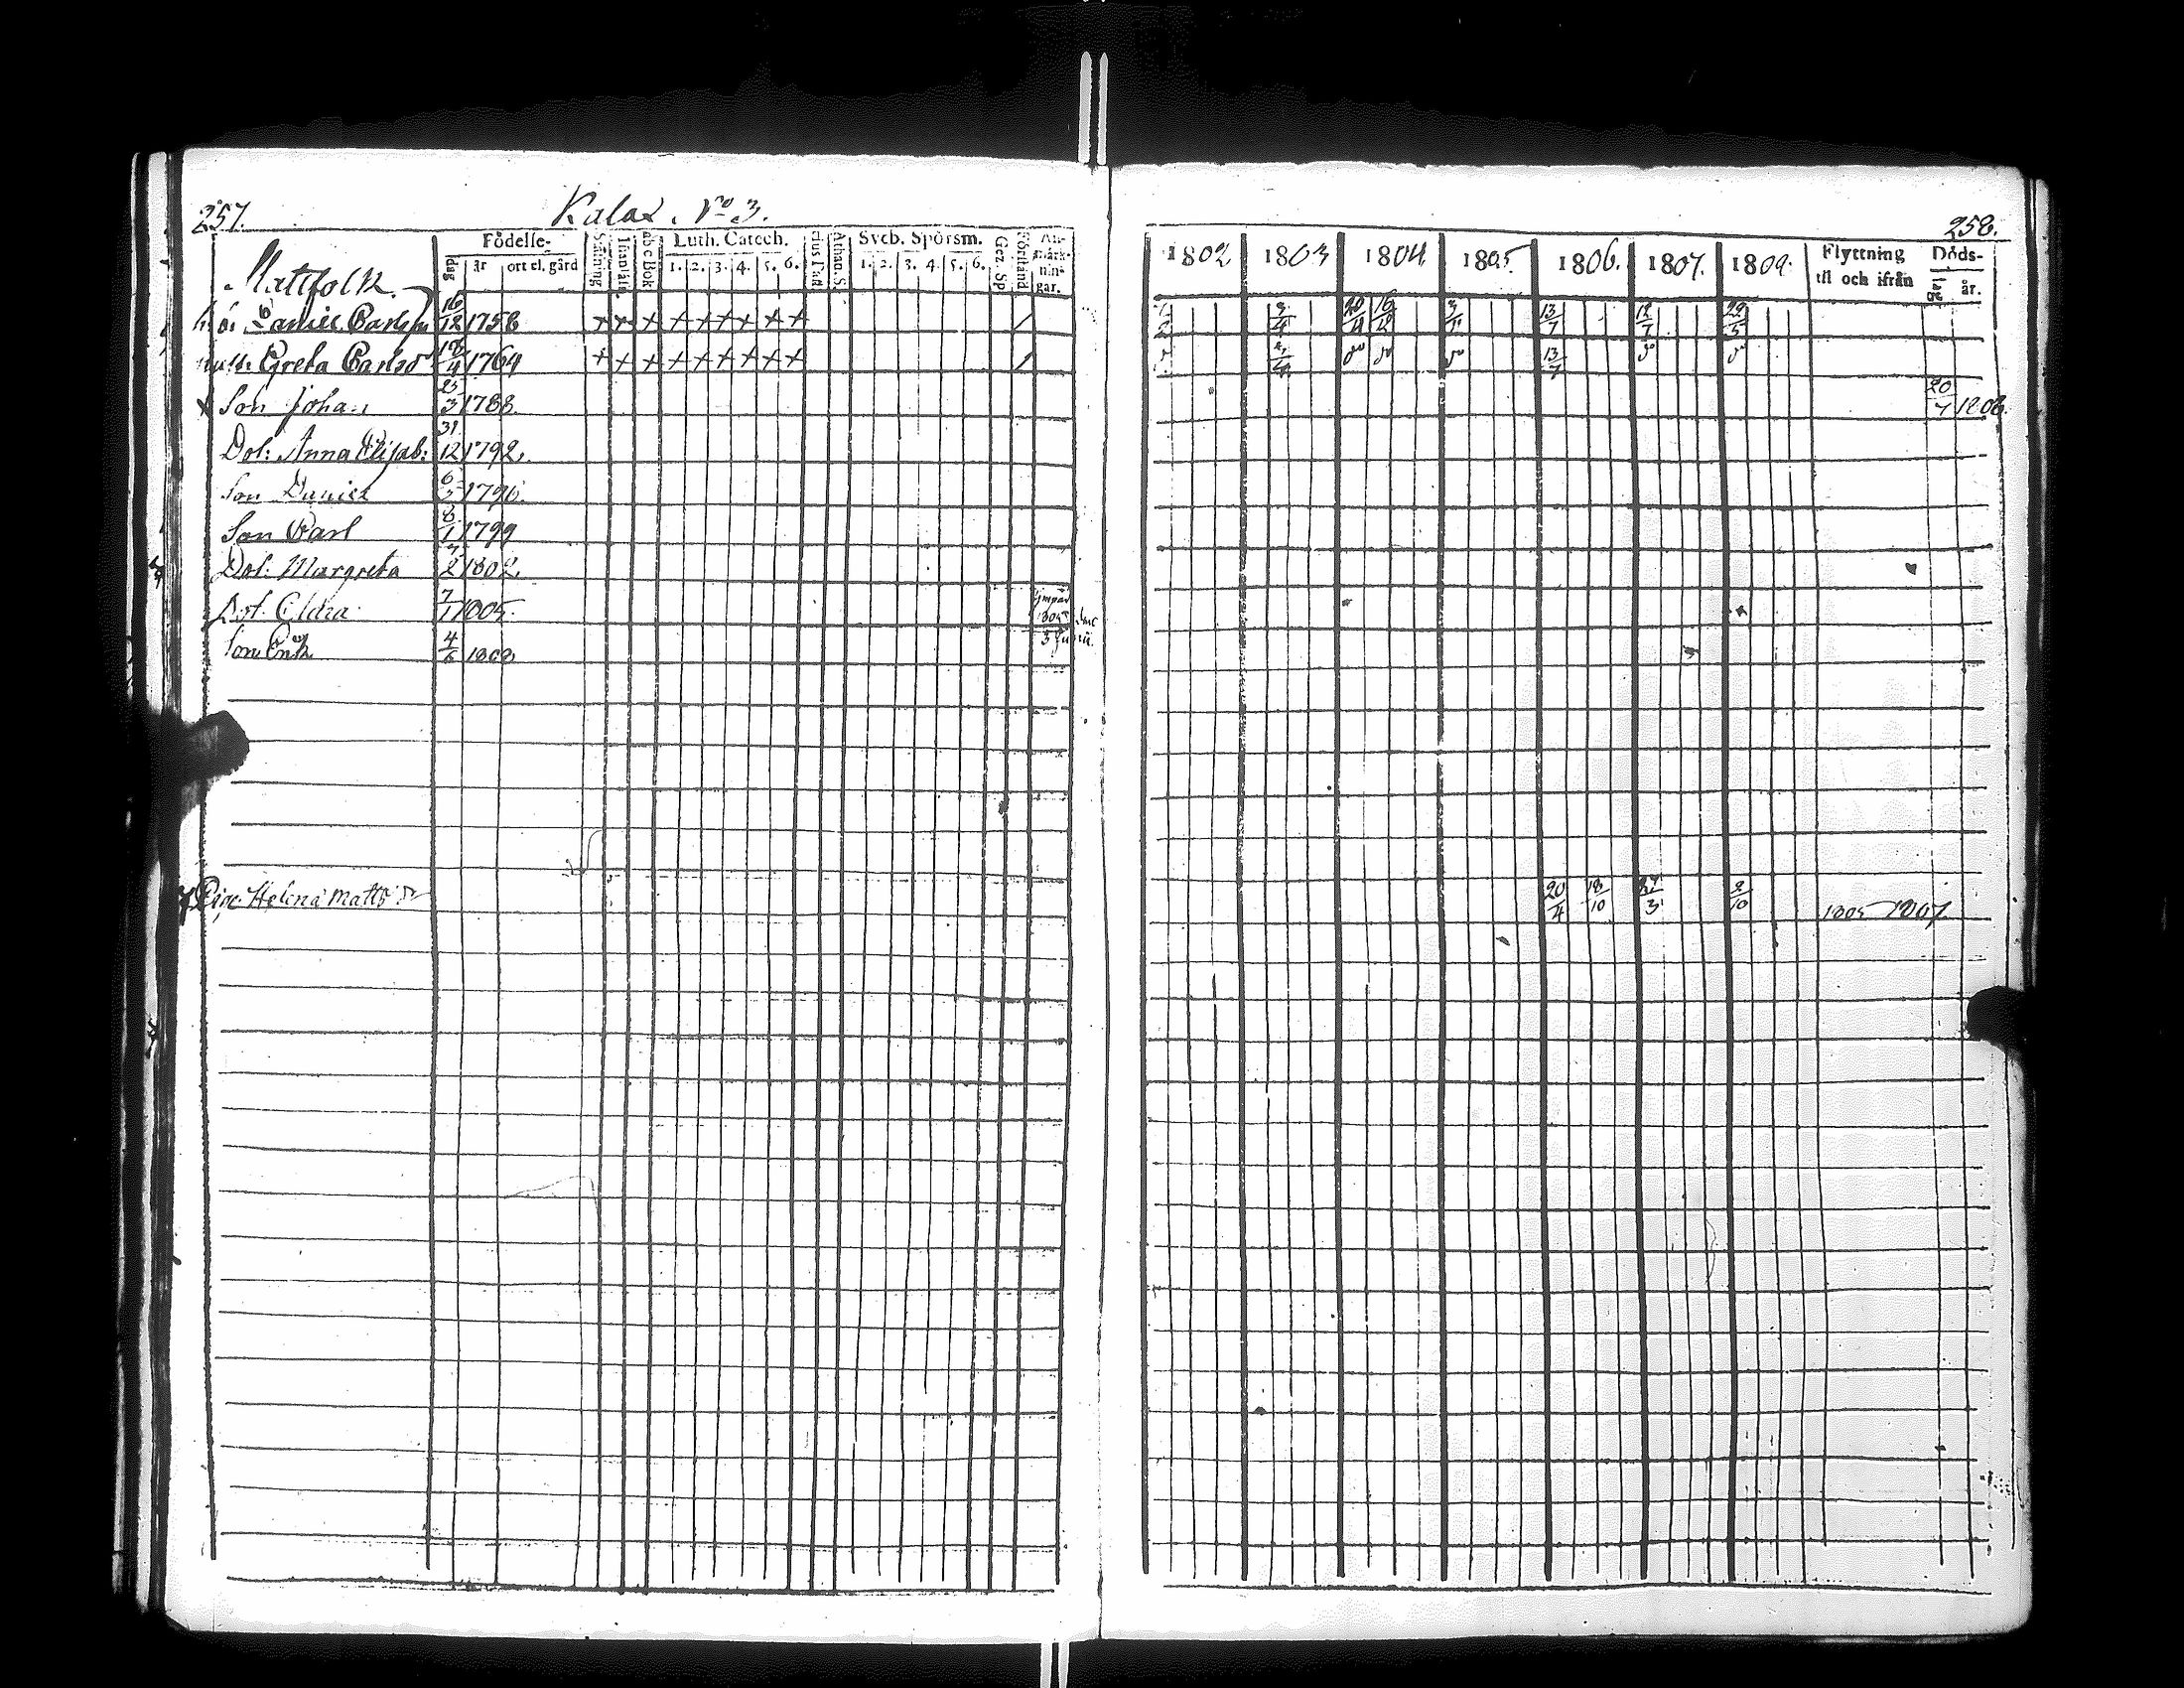 257.
Kalax. No 3.
Födelse-
dag år ort el. gård
Stafning
Innanläsn.
abc Bok
Luth. Catech.
1. 2. 3. 4. 5. 6.
Athan. S.
Sveb. Spörsm.
1. 2. 3. 4. 5. 6.
Gez. Sp
Förstånd
An-
märk-
nin-
gar.
Mattfolk.
Daniel Carlss 16/12 1758 + + + + + + + + + /
Greta Carlsd 18/4 1764 + + + + + + + + + /
x Son Johan 25/3 1788.
Dot: Anna Elisab: 31/12 1792.
Son Daniel 6/5 1796.
Son Carl 8/1 1799
Dot: Margreta 2 1802.
Dot. Clara 7/1 1805.
Son Erik 4/6 1808
1805
3 Junii.
Pig. Helena Matts dr
258.
1802 1803 1804 1805 1806. 1807. 1809.
Flyttning
til och ifrån
Döds-
dag år.
3/4 16/12 13/7 12/7 22/5
do do do 13/7 do do
20/7 1808.
20/4 18/10 27/3 2/10 1805 1807